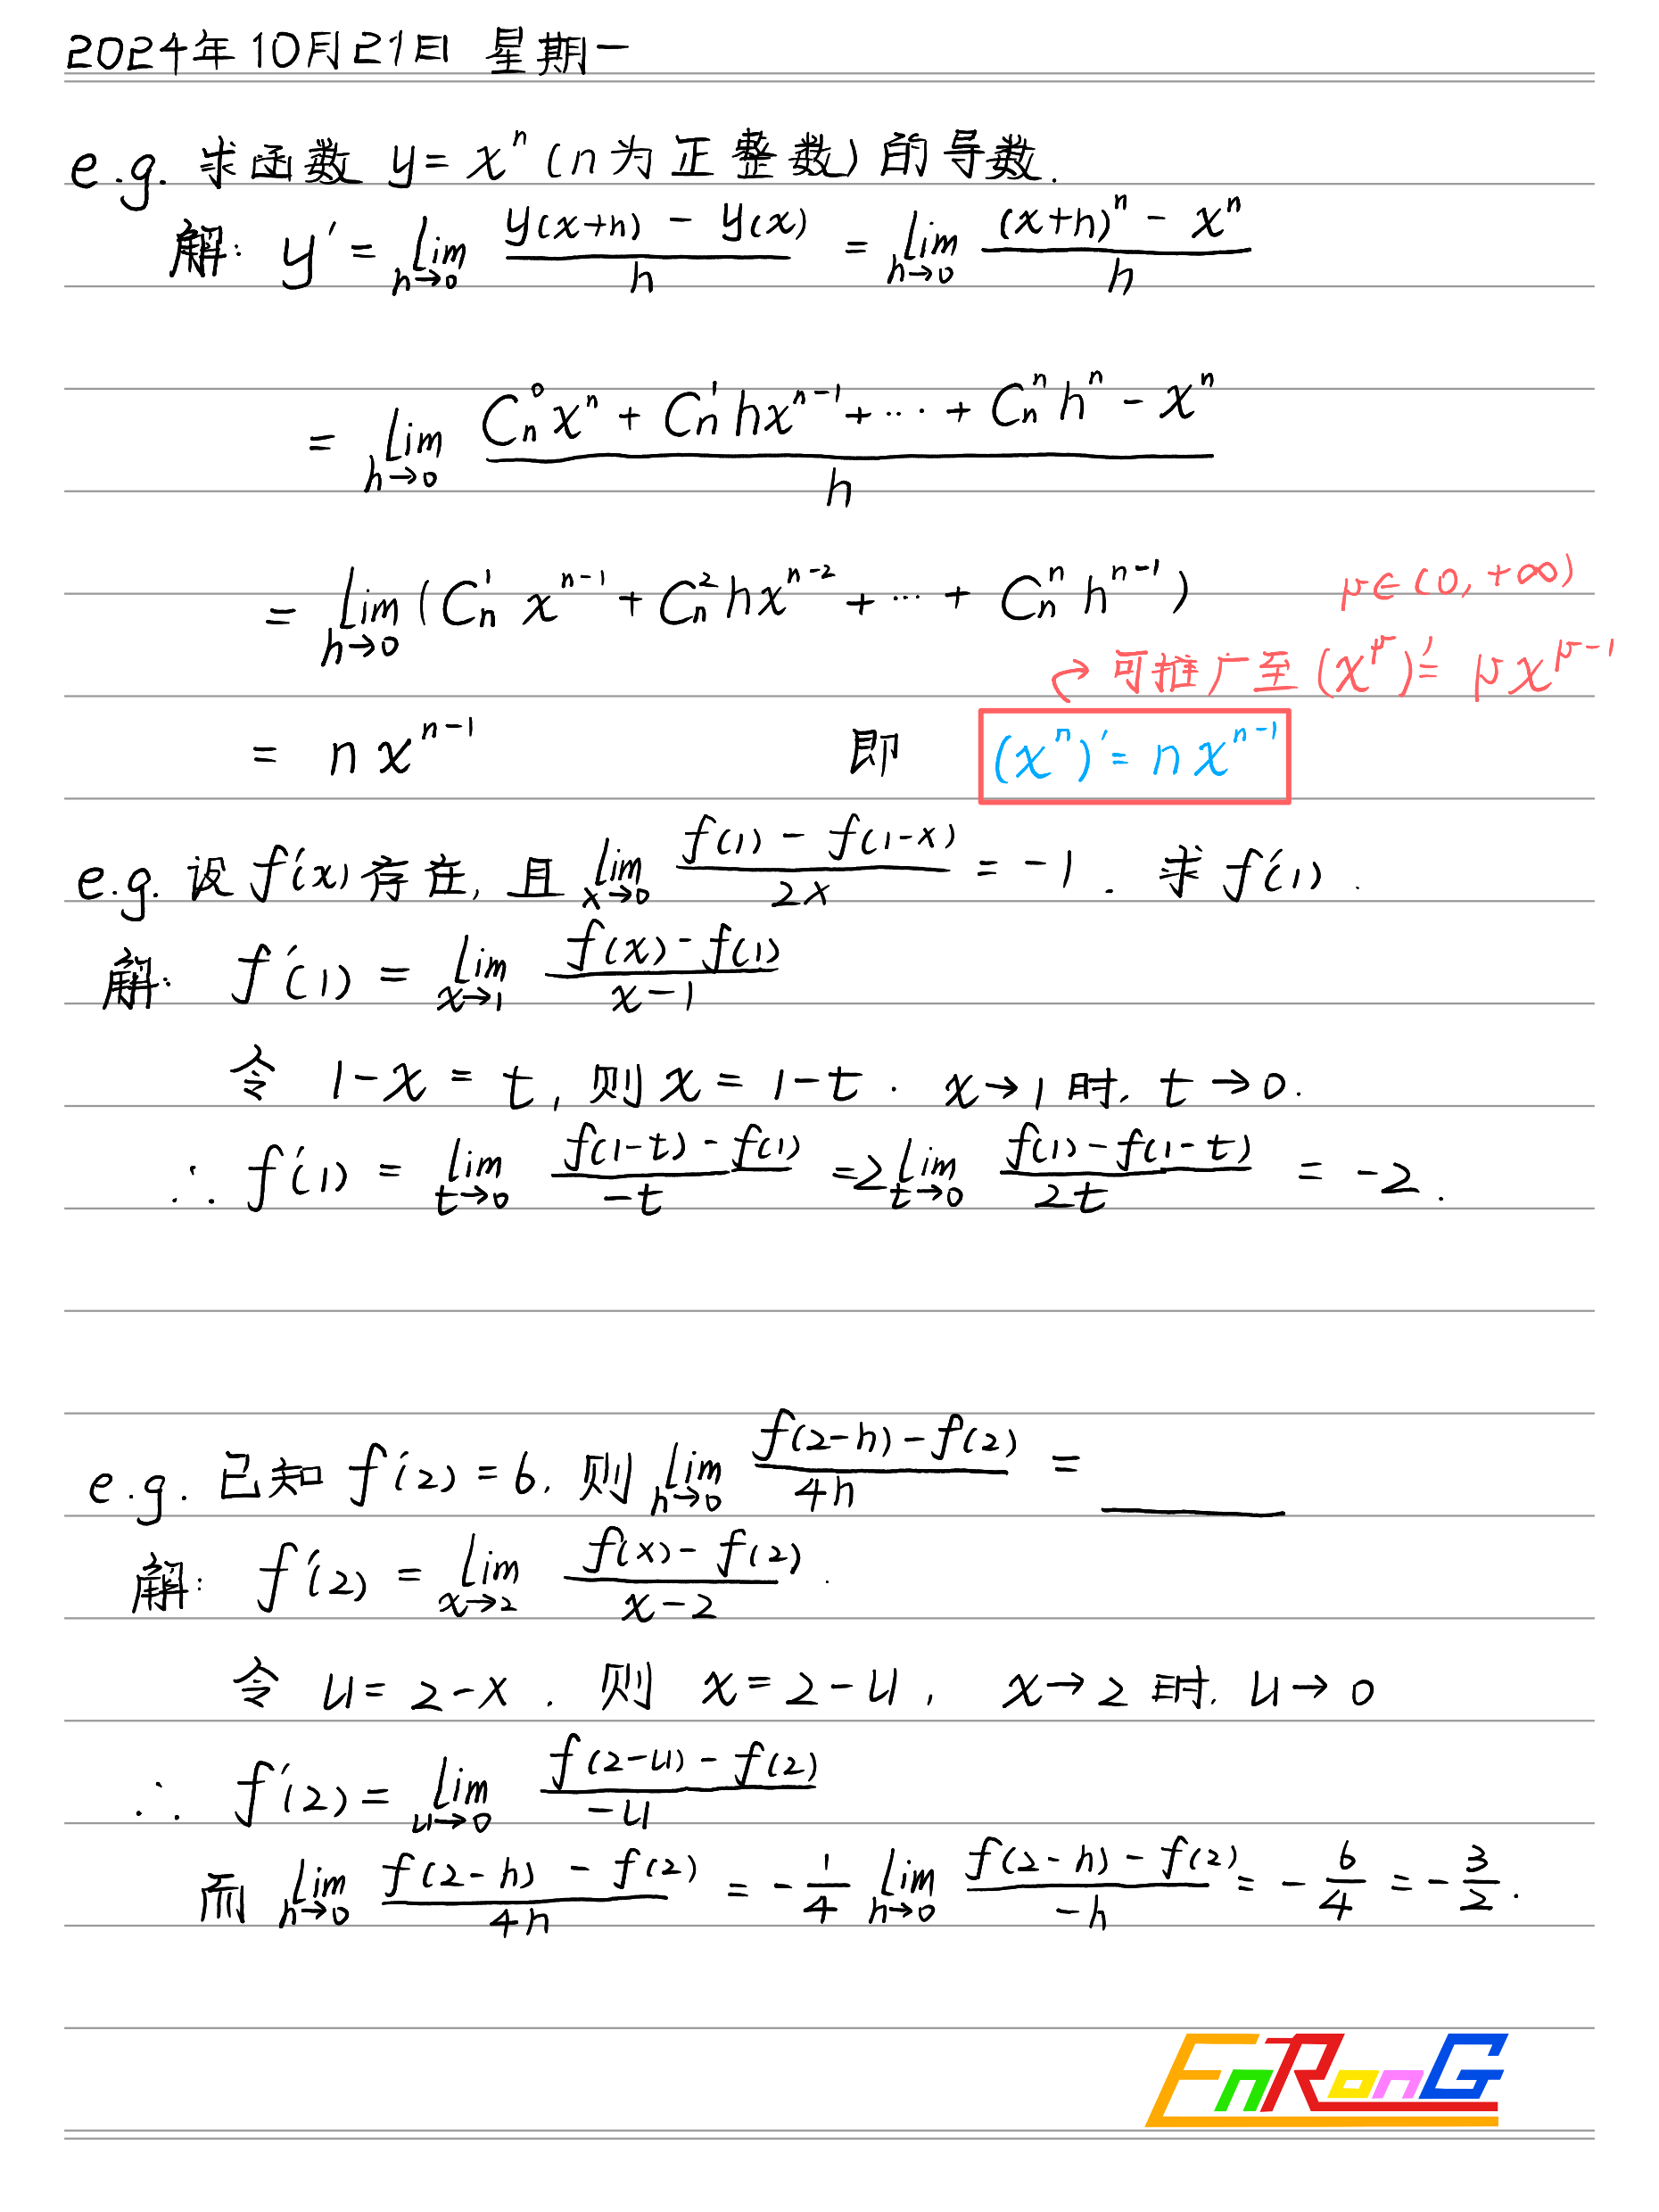 2024年10月21日 星期一
e.g. 求函数 y = xⁿ (n为正整数) 的导数.
解: y' = lim_{h→0} (y(x+h) - y(x))/h = lim_{h→0} ((x+h)ⁿ - xⁿ)/h
= lim_{h→0} (C_n^0 xⁿ + C_n^1 h x^{n-1} + ··· + C_n^n hⁿ - xⁿ)/h
= lim_{h→0} (C_n^1 x^{n-1} + C_n^2 h x^{n-2} + ··· + C_n^n h^{n-1})
μ∈(0, +∞)
↷ 可推广至 (x^μ)' = μ x^{μ-1}
= n x^{n-1} 即 (xⁿ)' = n x^{n-1}
e.g. 设 f'(x) 存在, 且 lim_{x→0} (f(1) - f(1-x))/(2x) = -1. 求 f'(1).
解: f'(1) = lim_{x→1} (f(x) - f(1))/(x-1)
令 1-x = t, 则 x = 1-t. x→1时, t→0.
∴ f'(1) = lim_{t→0} (f(1-t) - f(1))/(-t) = 2 lim_{t→0} (f(1) - f(1-t))/(2t) = -2.
e.g. 已知 f'(2) = 6, 则 lim_{h→0} (f(2-h) - f(2))/(4h) = ____
解: f'(2) = lim_{x→2} (f(x) - f(2))/(x-2).
令 u = 2-x. 则 x = 2-u, x→2时, u→0
∴ f'(2) = lim_{u→0} (f(2-u) - f(2))/(-u)
而 lim_{h→0} (f(2-h) - f(2))/(4h) = -1/4 lim_{h→0} (f(2-h) - f(2))/(-h) = -6/4 = -3/2.
EnRonG